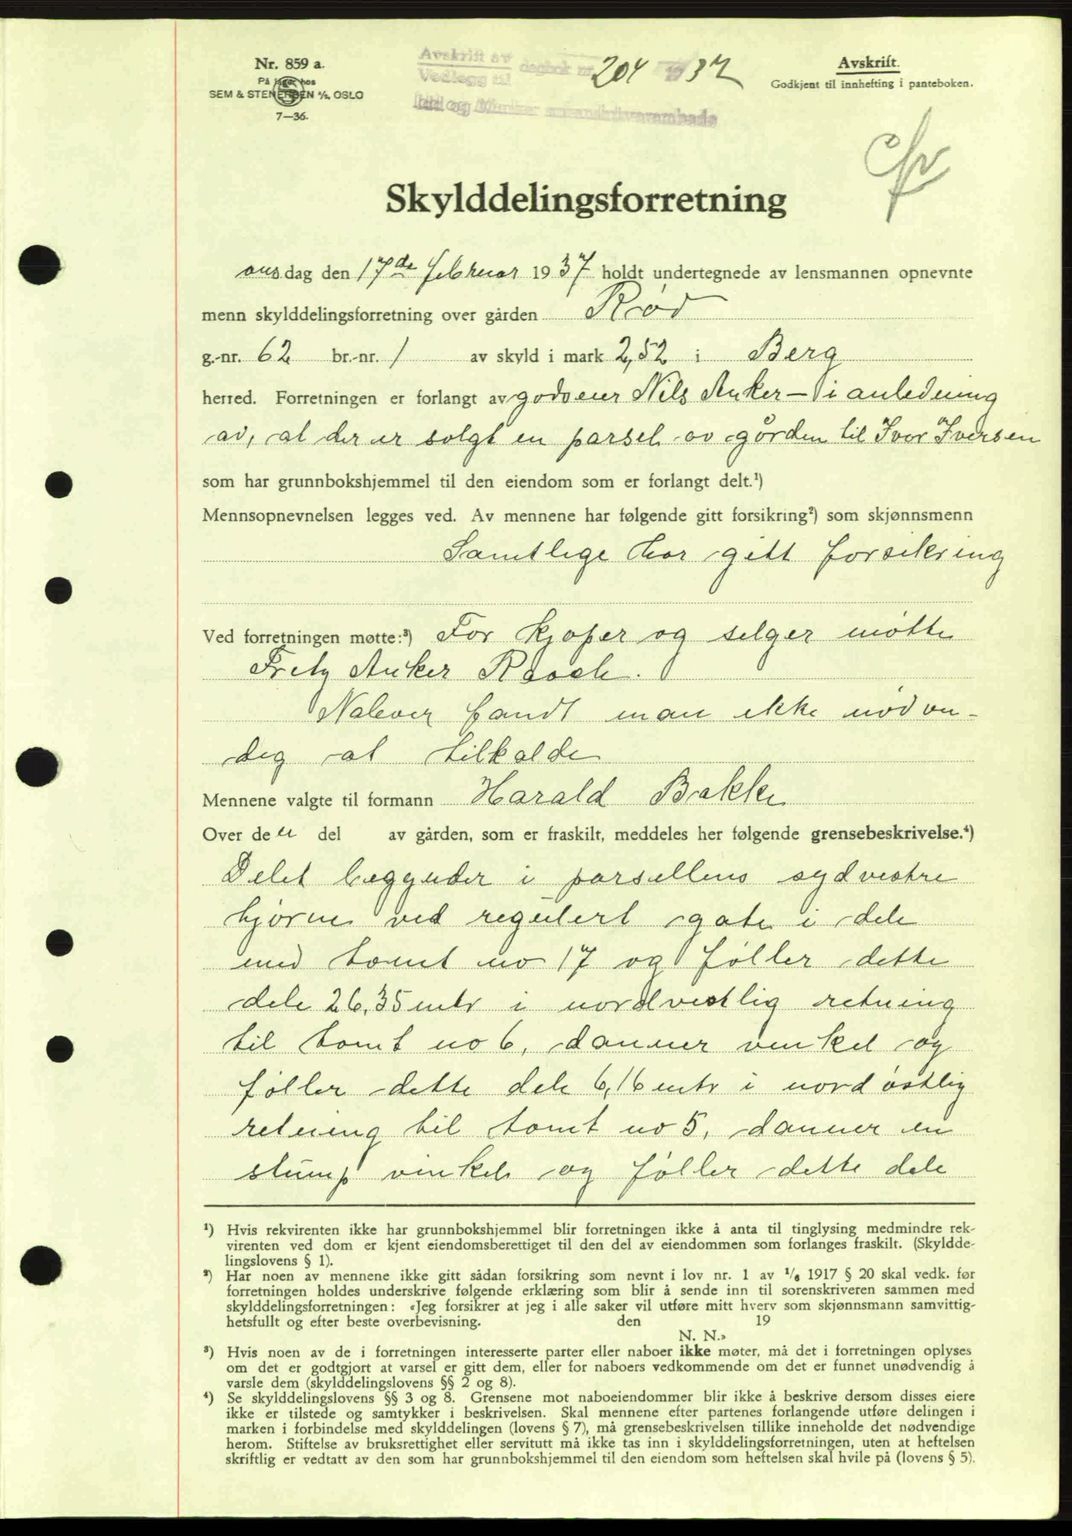 Nr. 859 a.
På lager hos
SEM & STENERSEN A/S, OSLO
7—36.
Avskrift av
Vedlegg til dagbok nr. 204 1937
Idd og Marker sorenskriverembede
Avskrift.
Godkjent til innhefting i panteboken.
Skylddelingsforretning
onsdag den 17de februar 1937 holdt undertegnede av lensmannen opnevnte
menn skylddelingsforretning over gården Rød
g.-nr. 62 br.-nr. 1 av skyld i mark 2,52 i Berg
herred. Forretningen er forlangt av godseier Nils Anker — i anledning
av, at der er solgt en parsel av gården til Ivar Iversen
som har grunnbokshjemmel til den eiendom som er forlangt delt.¹)
Mennsopnevnelsen legges ved. Av mennene har følgende gitt forsikring²) som skjønnsmenn
Samtlige har gitt forsikring
Ved forretningen møtte:³) For kjøper og selger møtte
Fritz Anker Raash.
Naboer fandt man ikke nødven-
dig at tilkalde
Mennene valgte til formann Harald Bakke
Over den del av gården, som er fraskilt, meddeles her følgende grensebeskrivelse.⁴)
Delet begynder i parsellens sydvestre
hjørne ved regulert gate i dele
med tomt no 17 og føller dette
dele 26,35 mtr i nordvestlig retning
til tomt no 6, danner vinkel og
føller dette dele 6,16 mtr i nordøstlig
retning til tomt no 5, danner en
stump vinkel og føller dette dele
¹) Hvis rekvirenten ikke har grunnbokshjemmel blir forretningen ikke å anta til tinglysing medmindre rek-
virenten ved dom er kjent eiendomsberettiget til den del av eiendommen som forlanges fraskilt. (Skyldde-
lingslovens § 1).
²) Har noen av mennene ikke gitt sådan forsikring som nevnt i lov nr. 1 av 1/6 1917 § 20 skal vedk. før
forretningen holdes underskrive følgende erklæring som blir å sende inn til sorenskriveren sammen med
skylddelingsforretningen: «Jeg forsikrer at jeg i alle saker vil utføre mitt hverv som skjønnsmann samvittig-
hetsfullt og efter beste overbevisning. den 19
N. N.»
³) Hvis noen av de i forretningen interesserte parter eller naboer ikke møter, må det i forretningen oplyses
om det er godtgjort at varsel er gitt dem, eller for naboers vedkommende om det er funnet unødvendig å
varsle dem (skylddelingslovens §§ 2 og 8).
⁴) Se skylddelingslovens §§ 3 og 8. Grensene mot naboeiendommer blir ikke å beskrive dersom disses eiere
ikke er tilstede og samtykker i beskrivelsen. Skal mennene efter partenes forlangende utføre delingen i
marken i forbindelse med skylddelingen (lovens § 7), må grensebeskrivelsen tillike inneholde det nødvendige
herom. Stiftelse av bruksrettighet eller servitutt må ikke tas inn i skylddelingsforretningen, uten at heftelsen
skriftlig er vedtatt av den som har grunnbokshjemmel til den eiendom som heftelsen skal hvile på (lovens § 5).